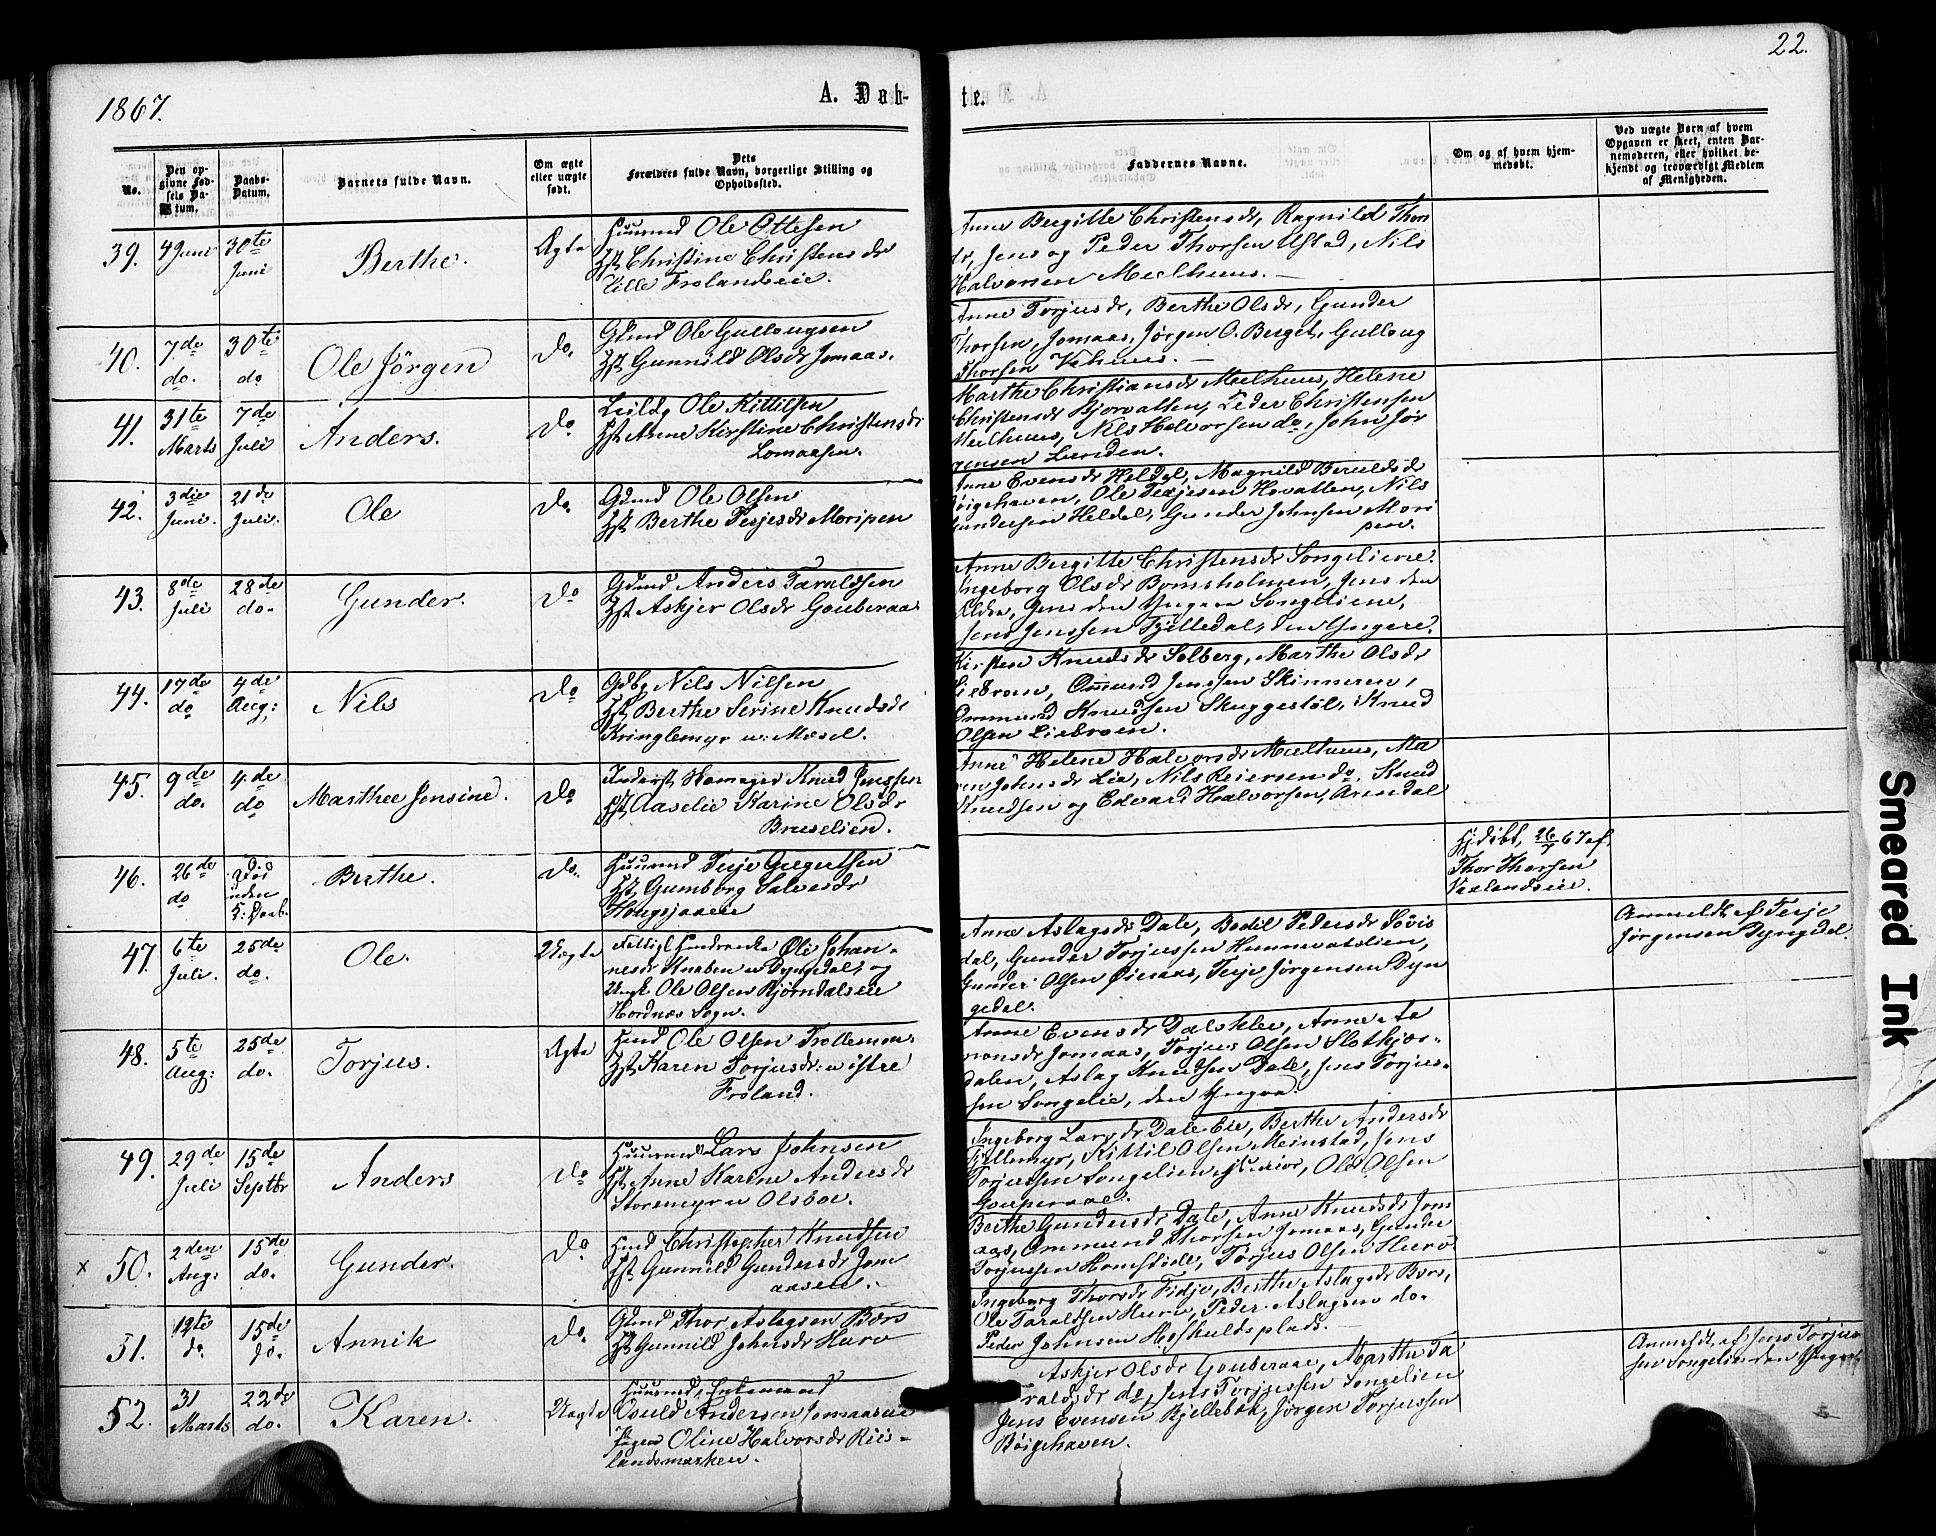 1867.
A. Døb-
te.
22.
No.
Den op-
givne Fød-
sels Da-
tum.
Daabs-
Datum.
Barnets fulde Navn.
Om ægte
eller uægte
født.
Dets
Forældres fulde Navn, borgerlige Stilling og
Opholdssted.
Faddernes Navne.
Om og af hvem hjem-
medøbt.
Ved uægte Børn af hvem
Opgaven er skeet, enten Bar-
nemoderen, eller hvilket be-
kjendt og troværdigt Medlem
af Menigheden.
39.
4 Juni
30te
Juni
Berthe.
Ægte
Huusmd Ole Ottesen
Hst Christine Christensdr
Lille Frolandseie.
Anne Bergitte Christensdr, Ragnild Thors
dr, Jens og Peder Thorsen Ufstad, Nils
Halvorsen Meelhuus.
40.
7de
do.
30te
do
Ole Jörgen
Do.
Gdmd Ole Gullaugsen
Hst Gunnild Olsdr Jomaas.
Anne Torjusdr, Berthe Olsdr, Gunder
Thorsen, Jomaas, Jørgen O. Berget, Gullaug
Thorsen Vehuus.
41.
31te
Marts
7de
Juli
Anders.
Do
Leildg Ole Kittilsen
Hst Anne Kirstine Christensdr
Lomaasen.
Marthe Christiansdr Meelhuus, Helene
Christensdr Bjorvatten, Peder Christensen
Meelhuus, Nils Halvorsen do, John Jør
gensen Lunden.
42.
3die
Juni.
21de
Juli.
Ole
Do.
Gdmd Ole Olsen
Hst Berthe Terjesdr Moripen
Anne Evensdr Heldal, Magnild Beruldsdr
Bøigehaven, Ole Terjesen Hovatten, Nils
Gundersen Heldal, Gunder Johnsen Mori
pen.
43.
8de
Juli
28de
do.
Gunder.
Do
Gdmd Anders Taraldsen
Hst Askjer Olsdr Gouberaas
Anne Bergitte Christensdr Songeliene.
Ingeborg Olsdr Bomsholmen, Jens den
Ældre, Jens den Yngere Songeliene,
Jens Jenssen Fjelledal, den Yngere.
44.
17de
do
4de
Aug:
Nils
Do
Gdbg Nils Nilsen
Hst Berthe Serine Knudsdr
Kringlemyr u: Mosel.
Kirsten Knudsdr Solberg, Marthe Olsdr
Liebroen, Omund Jenssen Skinneren,
Ommund Knudsen Skuggestöl, Knud
Olsen Liebroen.
45.
9de
do.
4de
do
Marthee Jensine.
Do
Hst Aaselie Karine Olsdr
Brueselien.
Anne Helene Halvorsdr Meelhuus, Ma
ren Johnsdr Lie, Nils Reiersen do. Knud
Knudsen og Edvard Halvorsen, Arendal
46.
26de
do
Død
uden
K: Daab.
Berthe.
Do.
Huusmd Terje Gregertsen
Hst Gumborg Salvesdr
Hougsjaaeie
Hjdøbt, 26/7 67 af
Thor Thorsen
Vaelandseie.
47.
6te
Juli.
25de
do.
Ole.
Uægte
Ole Johan-
nesdr Knaben u Dyngedal, og
Ungk Ole Olsen Bjørndalseie
Hordnæs Sogn.
Anne Aslagsdr Dale, Bodil Pedersdr Løvis
dal, Gunder Torjussen Hummevatslien,
Gunder Olsen Øienaas, Terje Jörgensen Dyn
gedal.
Anmeldt af Terje
Jörgensen Dyngdal.
48.
5te
Aug:
25de
do.
Torjus.
Ægte
Hmd Ole Olsen Trollemoen
Hst Karen Torjusdr: u østre
Froland.
Anne Evensdr Dalsklev, Anne Aa
ronsdr Jomaas, Torjus Olsen Slotkjør-
dalen, Aslag Knudsen Dale, Jens Torjus-
sen Songelie, den Yngre.
49.
29de
Juli
15de
Septbr
Anders
Do
Huusmd Lars Johnsen
Hst Anne Karine Andersdr
Storemyr u Olsboe.
Ingeborg Larsdr Dale Eie, Berthe Andersdr
Fjellemyr, Kittil Olsen Meinstad, Jens
Torjussen Songelien Junior, Ole Olsen
Gouperaae.
x
50.
2den
Aug:
15de
do.
Gunder.
Do
Hmd Christopher Knudsen
Hst Gunnild Gundersdr Jom
aasen.
Berthe Gundersdr Dale, Anne Knudsdr Jom
aas, Ommund Thorsen Jomaas, Gunder
Torjussen Homsdöle, Torjus Olsen Hurv
51.
12te
do.
15de
do.
Annik
Do.
Gdmd Thor Aslagsen Børs
Hst Gunnild Johnsdr Hurv
Ingeborg Thorsdr Fidje, Berthe Aslagsdr Børs,
Ole Taraldsen Hurv, Peder Aslagsen do.
Peder Johnsen Roskuldsplads.
52.
31
Marts
22de
do.
Karen.
Uægte
Huusmd, Enkemand
Osuld Andersen Jomaaseie
Pigen Oline Halvorsdr Riis-
landsmarken.
Askjer Olsdr Gouberaae, Marthe Ta
raldsdr do, Jens Torjussen Songelien
Jens Evensen Kjellebæk, Jörgen Torjussen
Böigehaven.
Anmeldt af Jens Torjus-
sen Songelien den Yngere
Smeared Ink